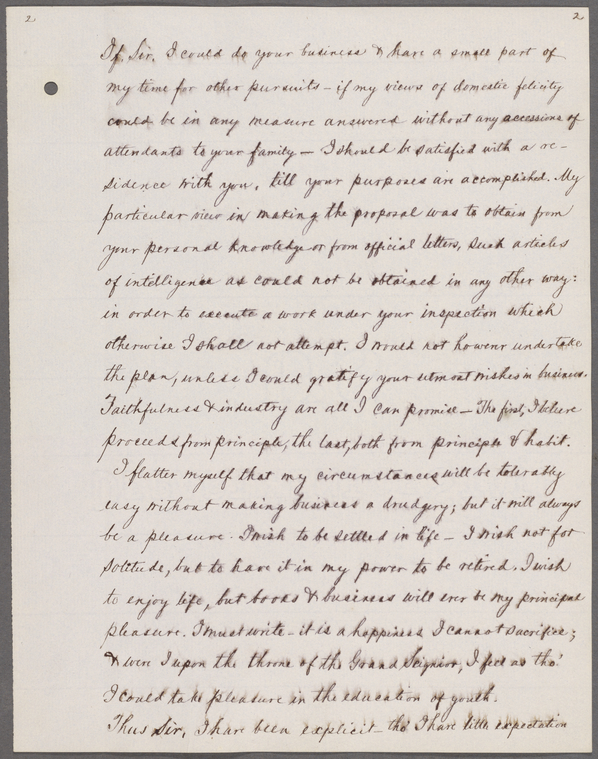 2 2
If, Sir, I could do your business & have a small part of
my time for other pursuits – if my views of domestic felicity
could be in any measure answered without any accessions of
attendants to your family – I should be satisfied with a re-
sidence with you, till your purposes are accomplished. My
particular view in making the proposal was to obtain from
your personal knowledge or from official letters, such articles
of intelligence as could not be obtained in any other way:
in order to execute a work under your inspection which
otherwise I shall not attempt. I would not however undertake
the plan, unless I could gratify your utmost wishes in business.
Faithfulness & industry are all I can promise – The first, I believe
proceeds from principle, the last, both from principle & habit.
I flatter myself that my circumstances will be tolerably
easy without making business a drudgery; but it will always
be a pleasure. I wish to be settled in life – I wish not for
solitude, but to have it in my power to be retired. I wish
to enjoy life, but books & business will ever be my principal
pleasure. I must write – it is a happiness I cannot sacrifice;
& were I upon the throne of the Grand Seignior, I feel as tho'
I could take pleasure in the education of youth.
Thus Sir, I have been explicit – tho' I have little expectation